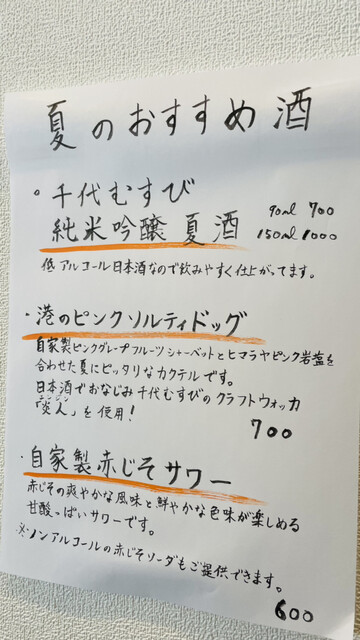 夏のおすすめ酒
・千代むすび
純米吟醸 夏酒 90ml 700
150ml 1000
低アルコール日本酒なので飲みやすく仕上がってます。
・港のピンクソルティドッグ
自家製ピンクグレープフルーツシャーベットとヒマラヤピンク岩塩を
合わせた夏にピッタリなカクテルです。
日本酒でおなじみ千代むすびのクラフトウォッカ
「炎人」を使用!
エンジン
700
・自家製赤じそサワー
赤じその爽やかな風味と鮮やかな色味が楽しめる
甘酸っぱいサワーです。
※ノンアルコールの赤じそソーダもご提供できます。
600